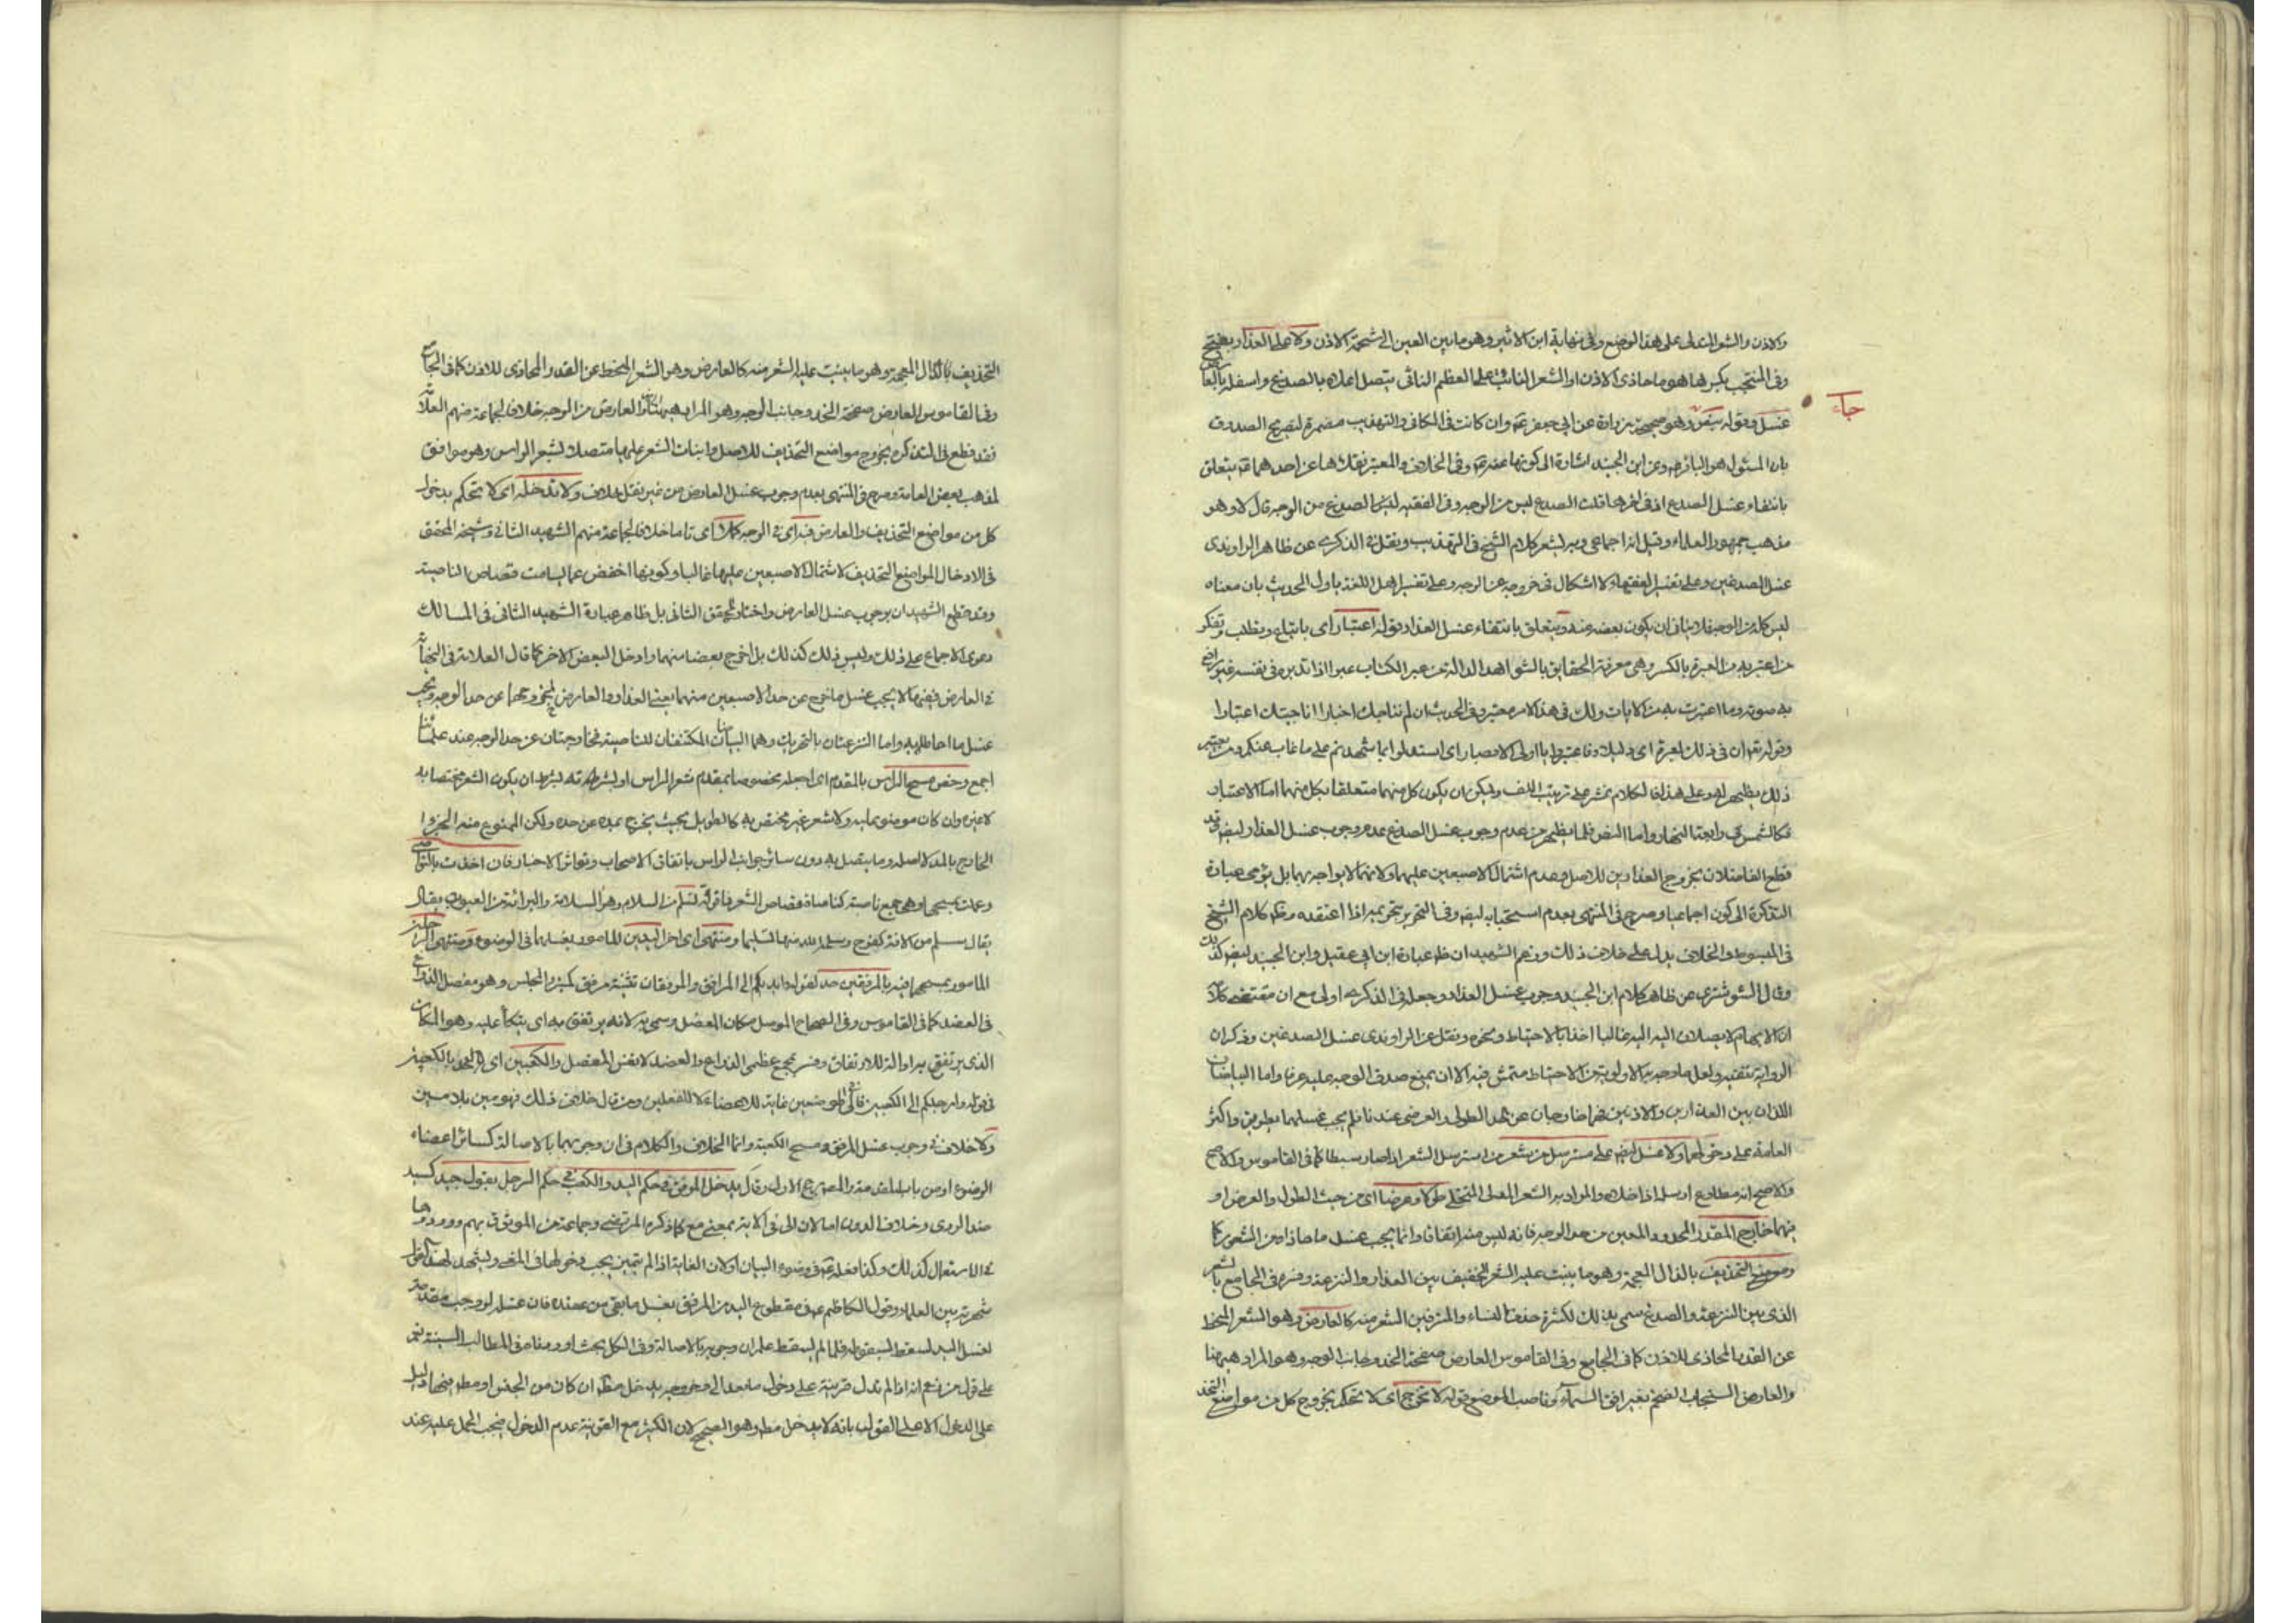 والاذن والشعر المتدلى على هذا الموضع وفى نهاية ابن الاثير وهو ما بين العين الى شحمة الاذن ولا على العذار
وفى المنتخب بكسرها هو ما حاذى الاذن او الشعر النابت على العظم الناتى يتصل اعلاه بالصدغ واسفله بالعارض
غسل وقوله وهو صحيحة زرارة عن ابى جعفر ع وان كانت فى الكافى والتهذيب مضمرة لتصريح الصدوق
بان المسئول هو الباقر ع وعن ابن الجنيد اشارة الى كونها عنه ع وفى الخلاف والمعتبر نقلاها عن احدهما ع يتعلق
بانتفاء غسل الصدغ اذ فى اخرها قلت الصدغ ليس من الوجه وفى الفقيه ليس الصدغ من الوجه قال لا وهو
مذهب جمهور العلماء وقيل انه اجماعى وبه يشعر كلام الشيخ فى التهذيب ونقل فى الذكرى عن ظاهر الراوندى
غسل الصدغين وعلى تفسير الفقهاء لا اشكال فى خروجه عن الوجه وعلى تفسير اهل اللغة ياول الحديث بان معناه
ليس كله من الوجه فلا ينافى ان يكون بعضه منه ويتعلق بانتفاء غسل العذار قوله اعتبار اى بابتلاء وتطلب وتفكر
من اعتبر به من العبرة بالكسر وهى معرفة الحقايق بالشواهد الدالة من عبر الكتاب عبرا اذا تدبره فى نفسه غير رافع
به صوته وما اعتبرت به من الايات ولك فى هذا الامر معتبر وفى الحديث ان لم تناجيك اخبارا ناجيتك اعتبارا
وقوله تع ان فى ذلك لعبرة اى دليلا وفاعتبروا يا اولى الابصار اى استدلوا بما شهدتم على ما غاب عنكم ومن
ذلك يظهر لهو وعلى هذا فالكلام نشر على ترتيب اللف ويمكن ان يكون كل منهما متعلقا بكل منهما اما الاعتبار
فكالشمس فى رابعة النهار واما النص فلما يظهر من عدم وجوب غسل الصدغ عدم وجوب غسل العذار ايضا وقد
قطع الفاضلان بخروج العذارين للاصل وعدم اشتمال الاصبعين عليهما ولانهما لا يواجه بهما بل يؤمى عبارة
التذكرة الى كون اجماعيا وصرح فى المنتهى بعدم استحبابه ايضا وفى التحرير بتحريمه اذا اعتقده وظ كلام الشيخ
فى المبسوط والخلاف يدل على خلاف ذلك وزعم الشهيدان ظ عبارة ابن ابى عقيل وابن الجنيد ايضا كذلك
وقال الشوشترى عن ظاهر كلام ابن الجنيد وجوب غسل العذار وجعله فى الذكرى اولى مع ان مقتضى
ان الابهام لا يصلان اليه غالبا اخذا بالاحتياط ونحوه ونقل عن الراوندى غسل الصدغين وذكر ان
الرواية تنفيه ولعل ما وجه به الاولوية من الاحتياط متمش فيه الا ان يمنع صدق الوجه عليه عرفا واما البياضان
اللذان بين العذارين والاذنين فهما خارجان عن حد الطولى والعرضى عندنا فلم يجب غسلهما بطريق واكثر
العامة على دخولهما ولا غسل ايضا على مسترسل من شعر من استرسل الشعر اذا صار سبطا كما فى القاموس والاصح
والاصح انه مطاوع ارسله اذا ضلاه والمراد به الشعر المدلى المتخلى طولا وعرضا اى من حيث الطول والعرض او
فيهما خارج المقدر المحدود والمعين من حد الوجه فانه ليس منه اتفاقا وانما يجب غسل ما حاذاه من الشعور كا
وموضع التحذيف بالذال المعجمة وهو ما ينبت عليه الشعر الخفيف بين العذار والنزعة وفسره فى الجامع بالشعر
الذى بين النزعة والصدغ سمى بذلك لكثرة حذف النساء والمترفين الشعر منه كالعارض وهو الشعر المنحط
عن القدر المحاذى للاذن كما فى الجامع وفى القاموس العارض صفحة الخد وجانب الوجه وهو المراد هيهنا
والعارض السحاب الضخم بغير افق السماء وناصب الموضع قوله لا تخرج اى لا تحكم بخروج كل من مواضع التحذ
التحذيف بالذال المعجمة وهو ما ينبت عليه الشعر منه كالعارض وهو الشعر المنحط عن القدر المحاذى للاذن كما فى الجامع
وفى القاموس العارض صفحة الخد وجانب الوجه وهو المراد هيهنا والعارض من الوجه خلافا لجماعة منهم العلامة
فقد قطع فى التذكرة بخروج مواضع التحذيف للاصل ونبات الشعر عليها متصلا لشعر الراس وهو موافق
لمذهب بعض العامة وصرح فى المنتهى بعدم وجوب غسل العارض من غير نقل خلاف ولا تدخله اى لا تحكم بدخول
كل من مواضع التحذيف والعارض فيه اى فى الوجه كملا اى تاما خلافا لجماعة منهم الشهيد الثانى وشيخه المحقق
فى الادخال المواضع التحذيف لاشتمال الاصبعين عليها غالبا وكونها اخفض عما يسامت قصاص الناصية
وقد قطع الشهيدان بوجوب غسل العارض واختاره المحقق الثانى بل ظاهر عبارة الشهيد الثانى فى المسالك
دعوى الاجماع على ذلك وليس ذلك كذلك بل اخرج بعضا منهما وادخل البعض الاخر كما قال العلامة فى النهاية
فى العارض فيضم ما لا يجب غسل ما خرج عن حد الاصبعين منهما يعنى العذار والعارض لخروجهما عن حد الوجه ويجب
غسل ما احاطا به واما النزعتان بالتحريك وهما البياضان المكتنفان للناصية فخارجتان عن حد الوجه عند علمائنا
اجمع وخص مسح الراس بالمقدم اى اجعله مخصوصا بمقدم شعر الراس او بشرطه بشرط ان يكون الشعر مختصا به
لا غيره وان كان موضوعا عليه ولا شعر غير مختص به كالطويل بحيث يخرج بمده عن حده ولكن الممنوع منه الجزو ا
الخارج بالمد لا اصله وما يتصل به دون سائر جوانب الراس باتفاق الاصحاب وتواتر الاخبار فان اخذت بالنواصى
وعمت بمسحى وهى جمع ناصية كناصاة قصاص الشعر فاتوقه تسلم من السلام وهو السلامة والبرائة من العيوب يقال
يقال سلم من الافة كفرح وسلمه الله منها تسليما ومنتهى اى اخر اليدين للمامور بغسلهما فى الوضوء ومنتهى الرجلين
المامور بمسحهما فيه بالمرفقين حد لقوله وايديكم الى المرافق والمرفقان تثنية مرفق كمنبر المجلس وهو مفصل الذراع
فى العضد كما فى القاموس وفى الصحاح الموصل مكان المفصل وسمى به لانه يرتفق به اى يتكأ عليه وهو المكان
الذى يرتفق به او آلة للارتفاق وفسر بمجمع عظمى الذراع والعضد لا نفس المفصل والكعبين اى بالكعبين
فى قوله وارجلكم الى الكعبين فالى فى الموضعين غاية للاعضاء لا للفعلين ومن قال خلاف ذلك فهو مين بلا مين
ولا خلاف فى وجوب غسل المرفق ومسح الكعبة وانما الخلاف والكلام فى ان وجوبهما بالاصالة كسائر اعضاء
الوضوء او من باب المقدمة والمصرح الاول وقال يدخل المرفق فى حكم اليد والكعب فى حكم الرجل بقول جيد كسيد
ضد الردى وخلاف الدون اما لان الى فى الاية بمعنى مع كما ذكره المرتضى وجماعة من الموثوق بهم وورودها
فى الاستعمال كذلك وكذا فعله ع فى وضوء البيان او لان الغاية اذا لم تتميز يجب دخولها فى المغيى
شهرته بين العلماء وقول الكاظم ع فى مقطوع اليد من المرفق يغسل ما بقى من عضده فان غسله لو وجب مقدمة
لغسل اليد لسقط بسقوطه فلما لم يسقط علم ان وجوبه بالاصالة وفى الكل بحث اوردناه فى المطالب السنية نعم
على قول من زعم انه اذا لم تدل قرينة على دخول ما بعد الى وخروجه يدخل مط ان كان من الجنس او مط
على الدخول الا على القول بانه لا يدخل مط وهو الصحيح لان الكثير مع القرينة عدم الدخول فيجب الحمل عليه عند